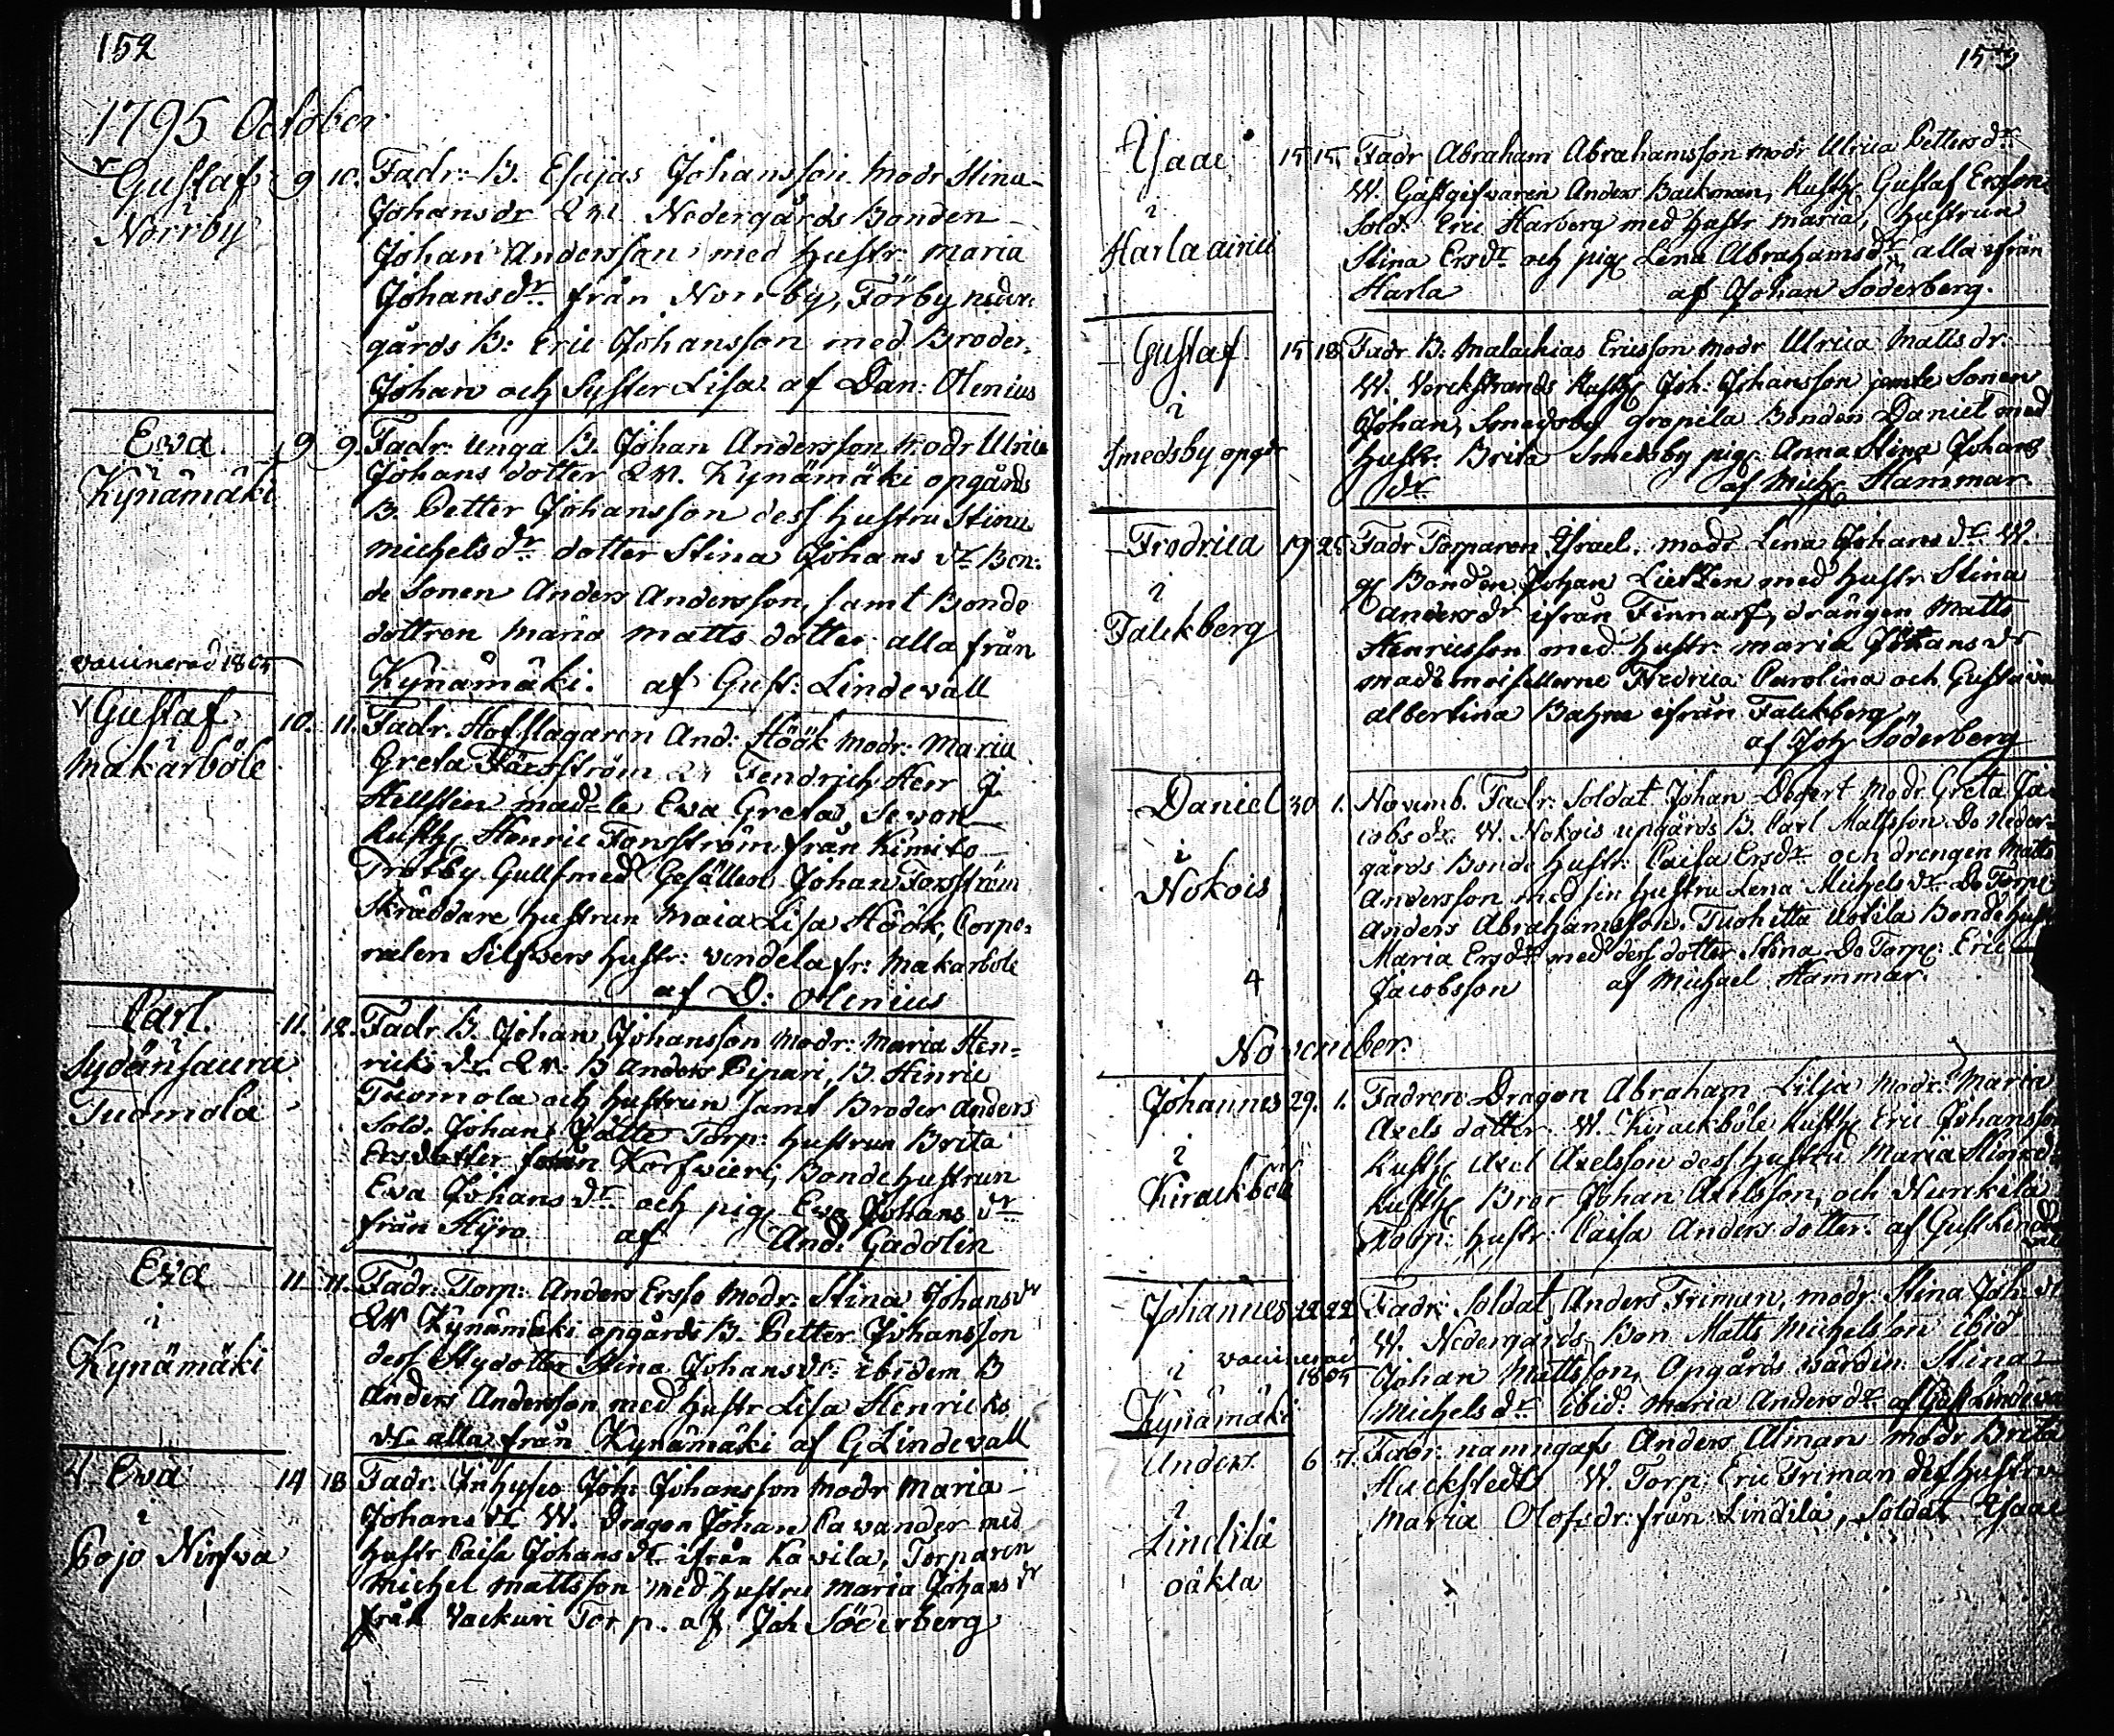 152
1795 October
v Gustaf 9 10. Fadr: B. Esajas Johansson Modr Stina
i Johansdr W. Nedergårds Bonden
Norrby Johan Andersson med hustr: Maria
Johansdr från Norrby, Förby neder-
gårds B: Eric Johansson med Broder
Johan och Syster Lisa af Dan: Olenius
Eva 9 9. Fadr: unga B. Johan Andersson Modr Ulrica
i Johans dotter W. Kynämäki opgårds
Kynämäki B. Petter Johansson dess hustru Stina
Michelsdr dotter Stina Johans dr Bon-
de Sonen Anders Andersson, samt Bonde
dottren Maria Matts dotter alla från
vaccinerad 1805 Kynämäki. af Gust: Lindevall
v Gustaf 10. 11. Fadr. Hofslagaren And: Höök Modr: Maria
i Greta Forsström W Fendrich Herr G.
Makarböle Hellstein mad:le Eva Greta Sevon
Rusth Henric Forsström från Kimito
Trotby Gullsmed Gesällen Johan Forsström
Skräddare hustrun Maia Lisa Höök, Corpo-
ralen Silfvers hustr: Vendela fr: Makarböle
af D: Olenius
Carl. 11. 12. Fadr B. Johan Johansson Modr: Maria Hen-
Sydänsauri ricks dr W: B Anders Pipari, B. Henric
Tuomola Tuomola och hustrun samt Broder Anders
Sold. Johan Jätte Torp: hustrun Brita
Ersdotter från Korfvieri, Bondehustrun
Eva Johans dr och pig Eva Johans dr
från Hyro af And: Gadolin
Eva 11 11. Fadr. Torp: Anders Ersso Modr: Stina Johans dr
i W Kynämäki opgårds B. Petter Johansson
Kynämäki dess Stydotter Stina Johansdr: ibidem B
Anders Andersson med hustr Lisa Henricks
dr alla från Kynämäki af G Lindevall
v Eva 14 18 Fadr. Inhyses Joh: Johansson Modr Maria
i Johans dr W. Dragon Johan Cavander med
Pojo Nirfva hustr Caisa Johans dr ifrån Kavila, Torparen
Michel Mattsson med hustru Maria Johans dr
från Vackuri Torp. af Joh Söderberg
153
Isaac 15 15 Fadr Abraham Abrahamsson modr Ulrica Pettersdr
i W. Gästgifvaren Anders Backman, Rusth Gustaf Ersson
Harla Sold. Eric Harberg med hustr Maria, hustrun
Stina Ersdr och pig Lena Abrahamsdr alla ifrån
Harla af Johan Söderberg.
Gustaf 15 18 Fadr B. Malachias Ericsson modr Ulrica Mattsdr.
i W. Rusth Joh. Johansson jemte Sonen
Smedsby opgår Johan, Smedsby gropila Bonden Daniel med
hustr. Brita Smedsby pig: Anna Stina Johans
dr af Mich Hammar.
Fredrica 19 25 Fadr Torparen Israel. modr Lena Johans dr W.
i Bonden Johan Lietzen med hustr Stina
Falckberg Anders dr ifrån Finnarf, drängen Matts
Henricsson med hustr Maria Johans dr
mademoisellerne Fredrica Carolina och Gustaiva
Albertina Bahne ifrån Falckberg
af Joh Söderberg
Daniel 30 1. Novemb. Fadr: Soldat Johan Degert Modr. Greta Ja-
i cobs dr. W. Nokois upgårds B. Carl Mattsson Do Neder-
Nokois gårds Bonde hustr: Caisa Ersdr och drengen Matts
Andersson med sin hustru Lena Michels dr Do Torp
Anders Abrahamsson. Tuohitta Uotila Bondehust
Maria Ersdr med dess dotter Stina Do Torp: Eric
4 Jacobsson af Michael Hammar.
November.
Johannes 29. 1. Fadren Dragon Abraham Lilja Modr: Maria
i Axels dotter W. Kirackböle Rusth Eric Johansson
Kirackböl Rusth Axel Axelsson dess hustru Maria Hinrdr
Rusth Bror Johan Axelsson, och Nurckila
Torp: hustr: Caisa Anders dotter. af Gust Lindevall
Johannes 22 22 Fadr: Soldat Anders Friman, modr Stina Joh. dr
i W. Nedergårds Bon Matts Michelsson ibid
vaccinerad 1805 Johan Mattsson, Opgårds värdin: Stina
Kynämäki Michels dr ibid: Maria Anders dr af Gust Lindeva
Anders 6 Fadr: namngafs Anders Alman modr Brita
i Huckstedt W. Torp: Eric Friman dess hustru
Lindila Maria Olofsdr: från Lindila, Soldat Isaac
oäkta